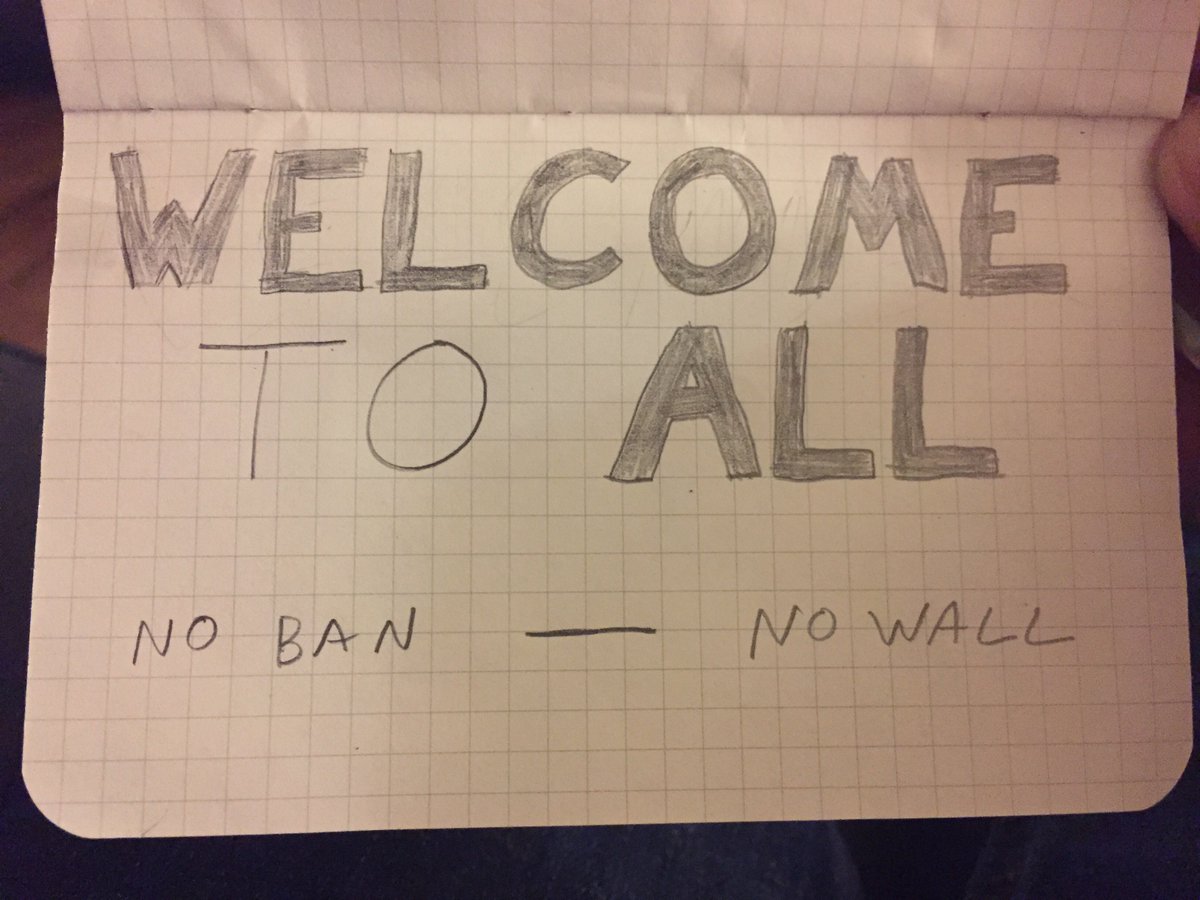 WELCOME
TO ALL
NO BAN — NO WALL